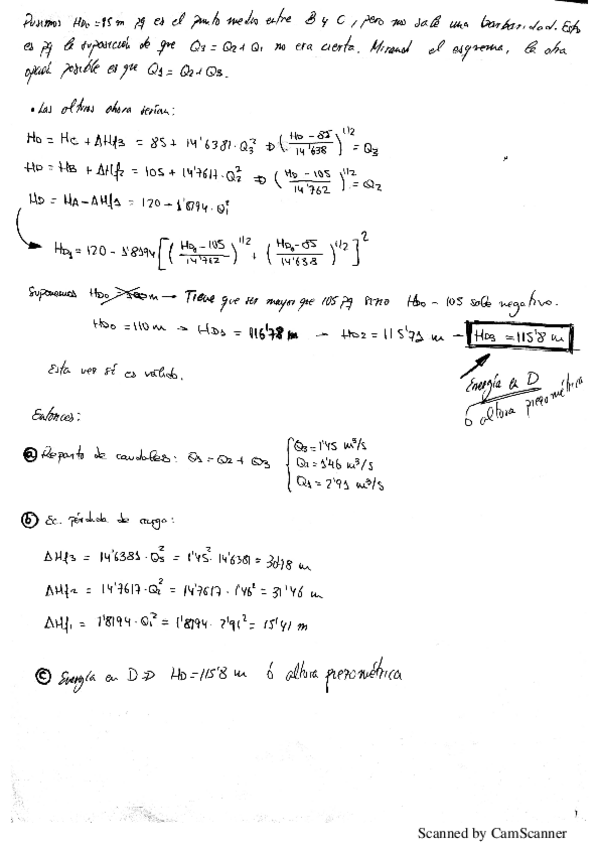 Pusimos HD0 = 95 m pq es el punto medio entre B y C, pero nos sale una barbaridad. Esto
es pq la suposición de que Q3 = Q2 + Q1 no era cierta. Mirando el esquema, la otra
opción posible es que Q1 = Q2 + Q3.
• Las alturas ahora serían:
HD = HC + ΔHf3 = 85 + 14'6381·Q3² ⇒ ((HD - 85)/14'638)^1/2 = Q3
HD = HB + ΔHf2 = 105 + 14'7617·Q2² ⇒ ((HD - 105)/14'762)^1/2 = Q2
HD = HA - ΔHf1 = 120 - 1'8194·Q1²
HD1 = 120 - 1'8194 [((HD0 - 105)/14'762)^1/2 + ((HD0 - 85)/14'638)^1/2]²
Suponemos HD0 = m → Tiene que ser mayor que 105 pq sino HD0 - 105 sale negativo.
HD0 = 110 m → HD1 = 116'78 m → HD2 = 115'71 m → HD3 = 115'8 m
Esta vez sí es válido.
Energía en D
ó altura piezométrica
Entonces:
a Reparto de caudales: Q1 = Q2 + Q3
Q3 = 1'45 m³/s
Q2 = 1'46 m³/s
Q1 = 2'91 m³/s
b Ec. pérdida de carga:
ΔHf3 = 14'6381·Q3² = 1'45²·14'6381 = 30'78 m
ΔHf2 = 14'7617·Q2² = 14'7617·1'46² = 31'46 m
ΔHf1 = 1'8194·Q1² = 1'8194·2'91² = 15'41 m
c Energía en D ⇒ HD = 115'8 m ó altura piezométrica
Scanned by CamScanner